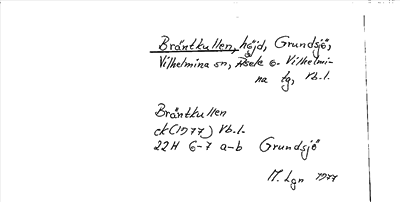 Bräntkullen, höjd, Grundsjö,
Vilhelmina sn, Åsele o. Vilhelmi-
na tg, Vb.l.
Bräntkullen
ek (1977) Vb.l.
22H 6-7 a-b Grundsjö
M. Lgn 1977